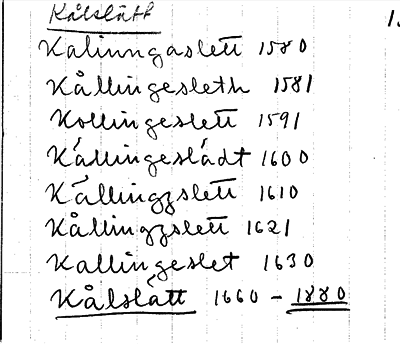 Kålslätt 1.
Kalinngaslett 1580
Kållingesleth 1581
Kollingeslett 1591
Kállingesládt 1600
Kállingzslett 1610
Kållingzslett 1621
Kallingeslet 1630
Kålslátt 1660 – 1880